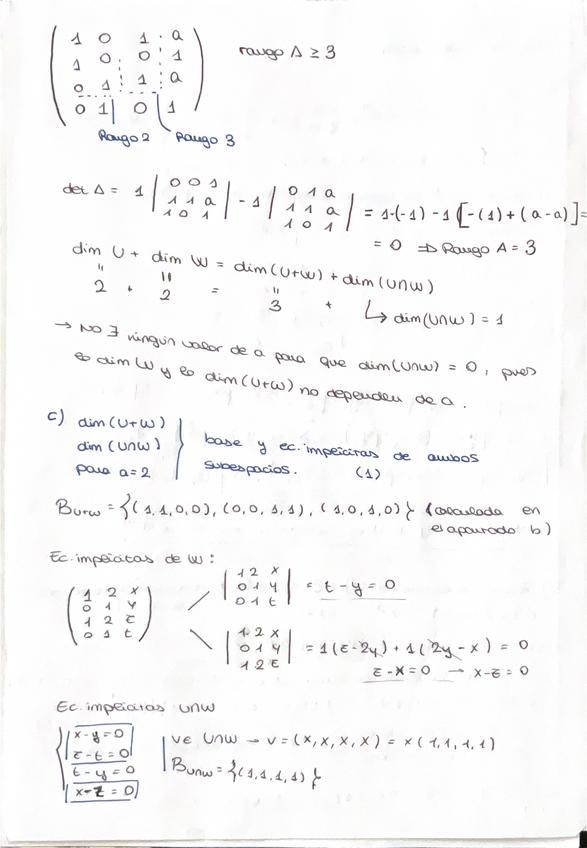 1 0 1 a
1 0 0 1 rango A ≥ 3
0 1 1 a
0 1 0 1
Rango 2 Rango 3
det A = 1 | 0 0 1 | - 1 | 0 1 a | = 1·(-1) - 1 [-(1) + (a-a)] =
1 1 a 1 1 a
1 0 1 1 0 1
= 0 ⇒ Rango A = 3
dim U + dim W = dim(U+W) + dim(U∩W)
" " "
2 + 2 = 3 + ↳ dim(U∩W) = 1
→ NO ∃ ningún valor de a para que dim(U∩W) = 0, pues
la dim W y la dim(U+W) no dependen de a.
c) dim(U+W)
dim(U∩W) base y ec. implícitas de ambos
para a=2 subespacios. (1)
BU+W = {(1,1,0,0), (0,0,1,1), (1,0,1,0)} (calculada en
el apartado b)
Ec. implícitas de W:
1 2 x
0 1 y
1 2 z
0 1 t
| 1 2 x |
| 0 1 y | = t - y = 0
| 0 1 t |
| 1 2 x |
| 0 1 y | = 1(z-2y) + 1(2y-x) = 0
| 1 2 z | z-x=0 → x-z=0
Ec. implícitas U∩W
x-y=0 v∈ U∩W → v = (x,x,x,x) = x(1,1,1,1)
z-t=0
t-y=0 BU∩W = {(1,1,1,1)}
x-z=0